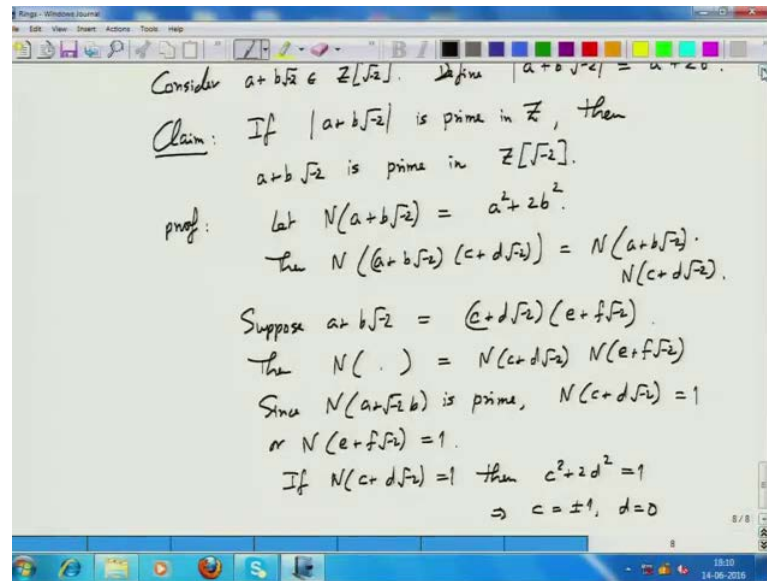 Rings - Windows Journal
File Edit View Insert Actions Tools Help
Consider a + b√-2 ∈ Z[√-2]. Define |a + b√-2| = a + 2b.
Claim: If |a + b√-2| is prime in Z, then
a + b√-2 is prime in Z[√-2].
proof: Let N(a + b√-2) = a² + 2b².
Then N((a + b√-2)(c + d√-2)) = N(a + b√-2)·
N(c + d√-2).
Suppose a + b√-2 = (c + d√-2)(e + f√-2).
Then N( . ) = N(c + d√-2) N(e + f√-2)
Since N(a + √-2 b) is prime, N(c + d√-2) = 1
or N(e + f√-2) = 1.
If N(c + d√-2) = 1 then c² + 2d² = 1
⇒ c = ±1, d = 0
8/8
8
18:10
14-06-2016